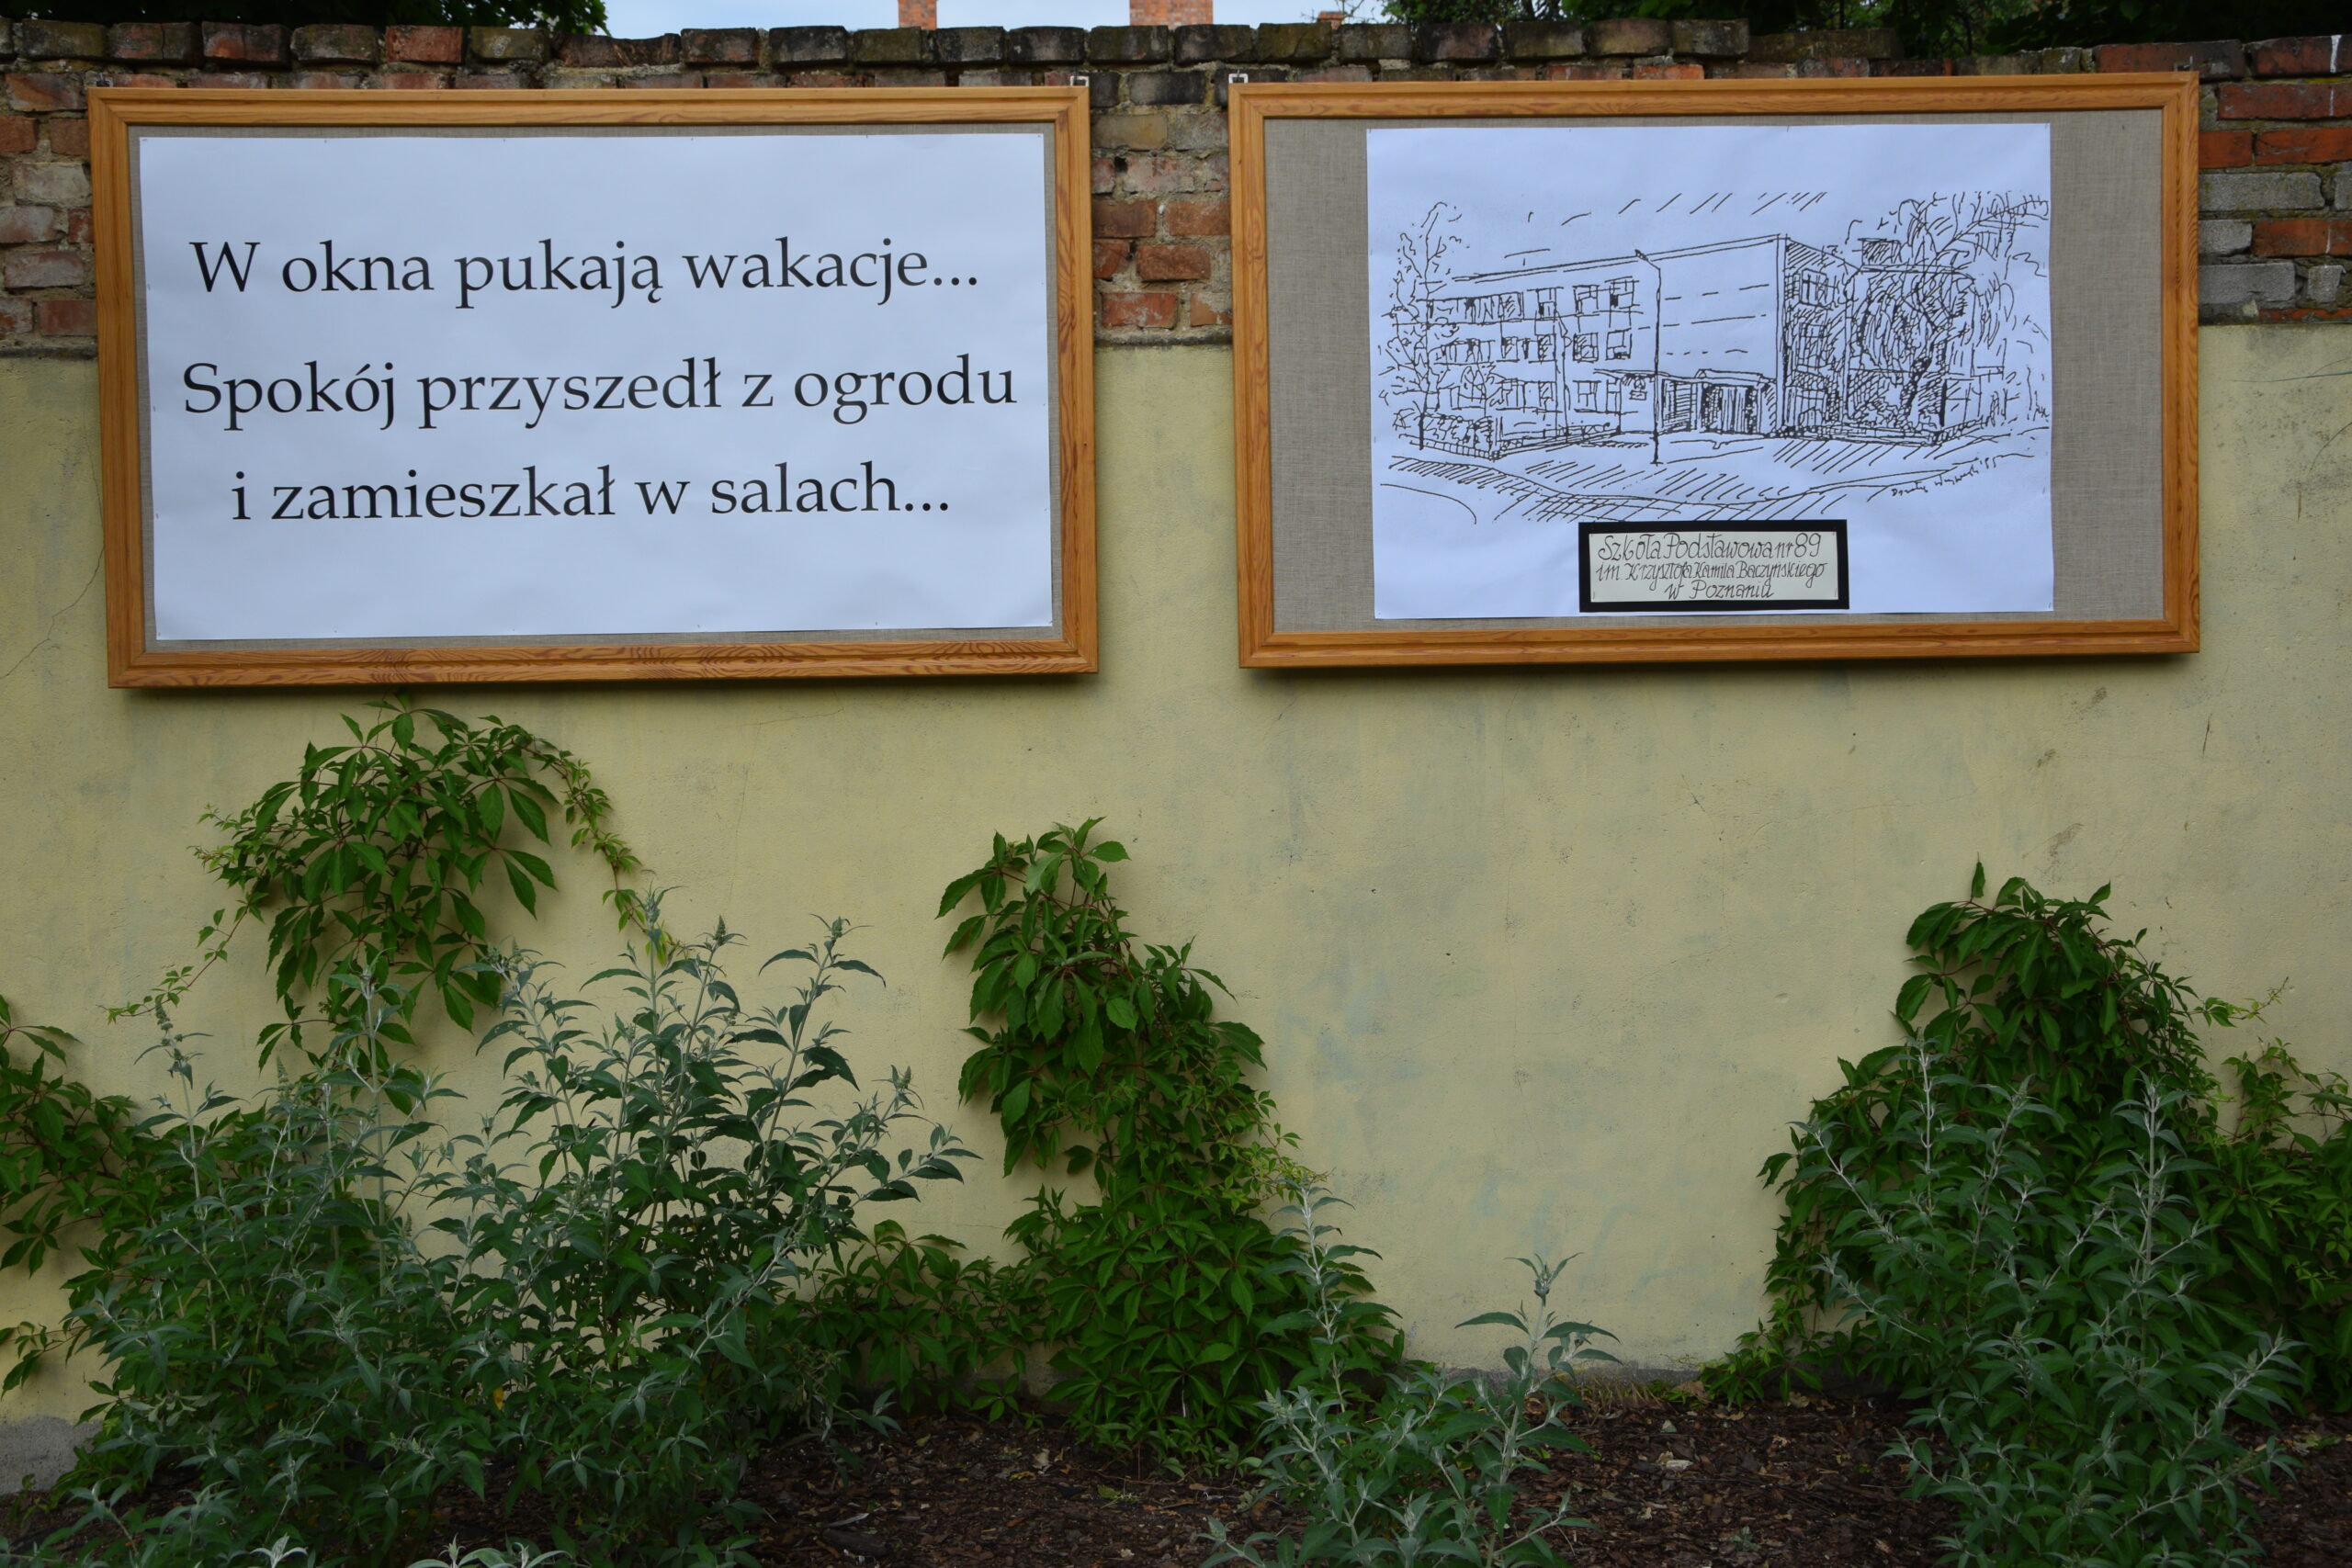 W okna pukają wakacje...
Spokój przyszedł z ogrodu
i zamieszkał w salach...
Szkoła Podstawowa nr 89
im. Krzysztofa Kamila Baczyńskiego
w Poznaniu